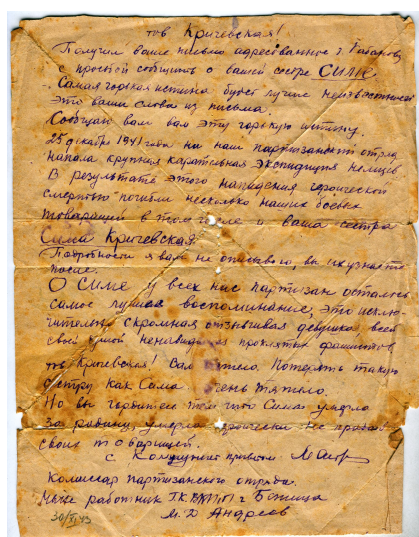 тов Кричевская!
Получил ваше письмо адресованное т. Рабанову
с просьбой сообщить о вашей сестре СИМЕ.
Самая горькая истина будет лучше неизвестности
это ваши слова из письма.
Сообщаю вам эту горькую истину.
25 декабря 1941 года на наш партизанский отряд
напала крупная карательная экспидиция немцев
В результате этого нападения героической
смертью погибли несколько наших боевых
товарищей в том числе и ваша сестра
Сима Кричевская.
Подробности я вам не описываю, вы их узнаете
после.
О Симе у всех нас партизан осталось
самое лучшее воспоминание, это исклю-
чительно скромная отзывчивая девушка всей
своей душой ненавидевшая проклятых фашистов
тов Кричевская! Вам тяжело. Потерять такую
сестру как Сима. Очень тяжело.
Но вы гордитесь тем что Сима умерла
за родину, умерла героически не предав
своих товарищей.
с Коммунист приветом.
комиссар партизанского отряда.
М. Д Андреев
30/V 43